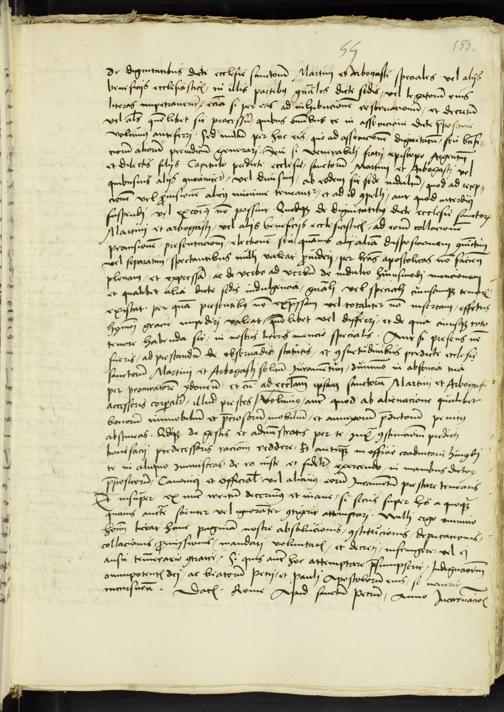 55 153.
de dignitatibus dicte ecclesie sanctorum Martini et Arbogasti speciales vel alijs
beneficijs ecclesiasticis in illis partibus generales dicte sedis vel legatorum eius
literas impetrarint, etiam si per eas ad inhibitionem reservationem et decretum
vel alias quomodolibet sit processum quibus omnibus te in assecutione dicte prepositure
volumus anteferri Sed nullum per hoc eis quo ad assecutionem dignitatum seu beneficiorum
aliorum preiudicium generari, seu si venerabili fratri nostro episcopo Argentinensi
et dilectis filijs Capitulo predicte ecclesie sanctorum Martini et Arbogasti vel
quibusvis alijs communiter vel divisim ab eadem sit sede indultum, quod ad receptionem
vel provisionem alicuius minime teneantur, et ad id compelli aut quod interdici
suspendi vel excommunicari non possint Quodque de dignitatibus dicte ecclesie sanctorum
Martini et Arbogasti vel alijs beneficijs ecclesiasticis ad eorum collationem
provisionem presentationem electionem seu quamvis aliam dispositionem coniunctim
vel separatim spectantibus nulli valeat provideri per literas apostolicas non facientes
plenam et expressam ac de verbo ad verbum de indulto huiusmodi mentionem
et qualibet alia dicte sedis indulgentia generali vel speciali cuiuscumque tenoris
existat per quam presentibus non expressam vel totaliter non insertam effectus
huiusmodi gratie impediri valeat quomodolibet vel differri et de qua cuiusque toto
tenore habenda sit in nostris literis mentio specialis
fueris, ad prestandum de observandis statutis et consuetudinibus predicte ecclesie
sanctorum Martini et Arbogasti solitum Iuramentum, dummodo in absentia tua
per procuratorem ydoneum et cum ad ecclesiam ipsam sanctorum Martini et Arbogasti
accesseris corporaliter, illud prestes Volumus autem quod ab alienatione quorumlibet
bonorum immobilium et preciosorum mobilium penitus
abstineas de gestis et administratis per te
bonifacij predecessoris rationem reddere Et antequam in officio coadiutorie huiusmodi
te in aliquo immisceas de eo iuste et fideliter exercendo in manibus
Canonici et Officialis vel alicuius eorum Iuramentum prestare tenearis
Et insuper ex nunc irritum decernimus et inane, si secus super his a quoque
quavis auctoritate scienter vel ignoranter contigerit attemptari. Nulli ergo omnino
hominum liceat hanc paginam nostre absolutionis, constitutionis, deputationis,
collationis provisionis, mandati, voluntatis, et decreti, infringere vel ei
ausu temerario contraire, Si quis autem hoc attemptare presumpserit, Indignationem
omnipotentis dei, ac beatorum Petri et Pauli Apostolorum eius, se noverit
incursurum. Datum Rome Apud sanctum Petrum, Anno Incarnationis